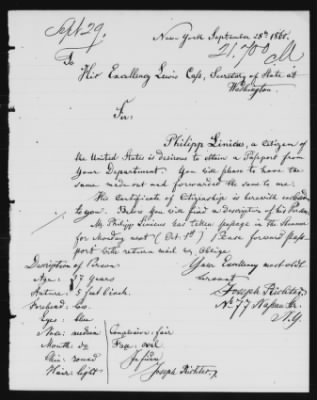 Sept 29.
New-York September 28th 1860.
21.700
To
His Excellency Lewis Cass, Secretary of State at
Washington.
Sir,
Philipp Linicus, a Citizen of
the United States is desirous to obtain a Passport from
Your Department. You will please to have the
same made out and forwarded the same to me.
His Certificate of Citizenship is herewith enclosed
to you. Below You will find a description of his Person
Mr Philipp Linicus has taken passage in the Steamer
for Monday next (Oct. 1st) Please forward pass-
port with return mail & oblige
Your Excellency most obdt
Servant
Joseph Richter,
No 77 Nassau Str.
N.Y.
Description of Person
Age: 37 years
Stature: 5 feet 6 inch.
Forehead: low
Eyes: blue
Nose: medium
Mouth: do
Chin: round
Hair: light
Complexion: fair
Face: oval
Joseph Richter